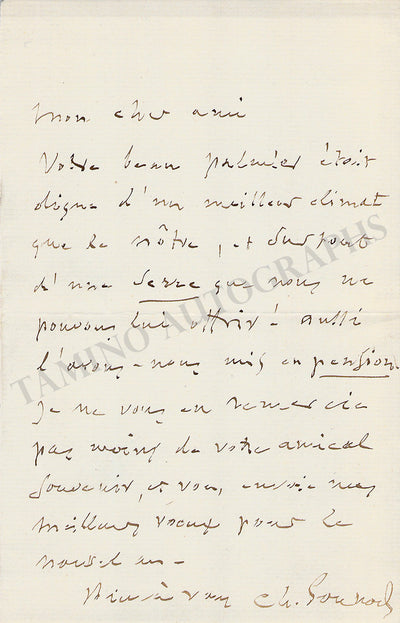 Mon cher ami
Votre beau palmier étoit
digne d'un meilleur climat
que le nôtre, et surtout
d'une serre que nous ne
pouvons lui offrir : aussi
l'avons-nous mis en pension.
Je ne vous en remercie
pas moins de votre amical
souvenir, et vous envoie mes
meilleurs vœux pour le
nouvel an -
à vous Ch. Gounod
TAMINO AUTOGRAPHS